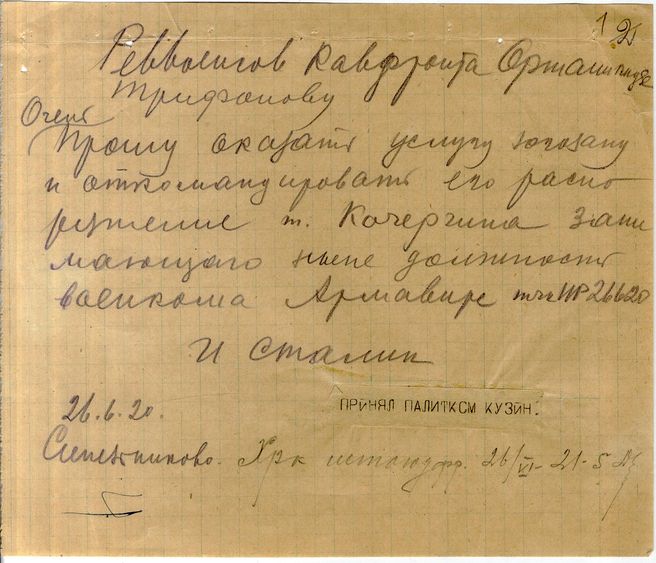 1 21
Реввоенсов Кавфронта Орджоникидзе
Трифонову
Очень
Прошу оказать услугу югозапу
и откомандировать его распо
ряжение т. Кочергина зани
мающего ныне должность
военкома Армавире тчк НР 26620
И Сталин
ПРИНЯЛ ПАЛИТКСМ КУЗИН.
26.6.20.
Синельниково.
26/VI - 21-5